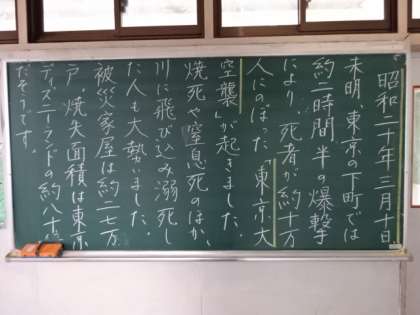 昭和二十年三月十日
未明、東京の下町では
約二時間半の爆撃
により、死者が約十万
人にのぼった「東京大
空襲」が起きました。
焼死や窒息死のほか、
川に飛び込み溺死し
た人も大勢いました。
被災家屋は約二七万
戸、焼失面積は東京
ディズニーランドの約八十
だそうです。